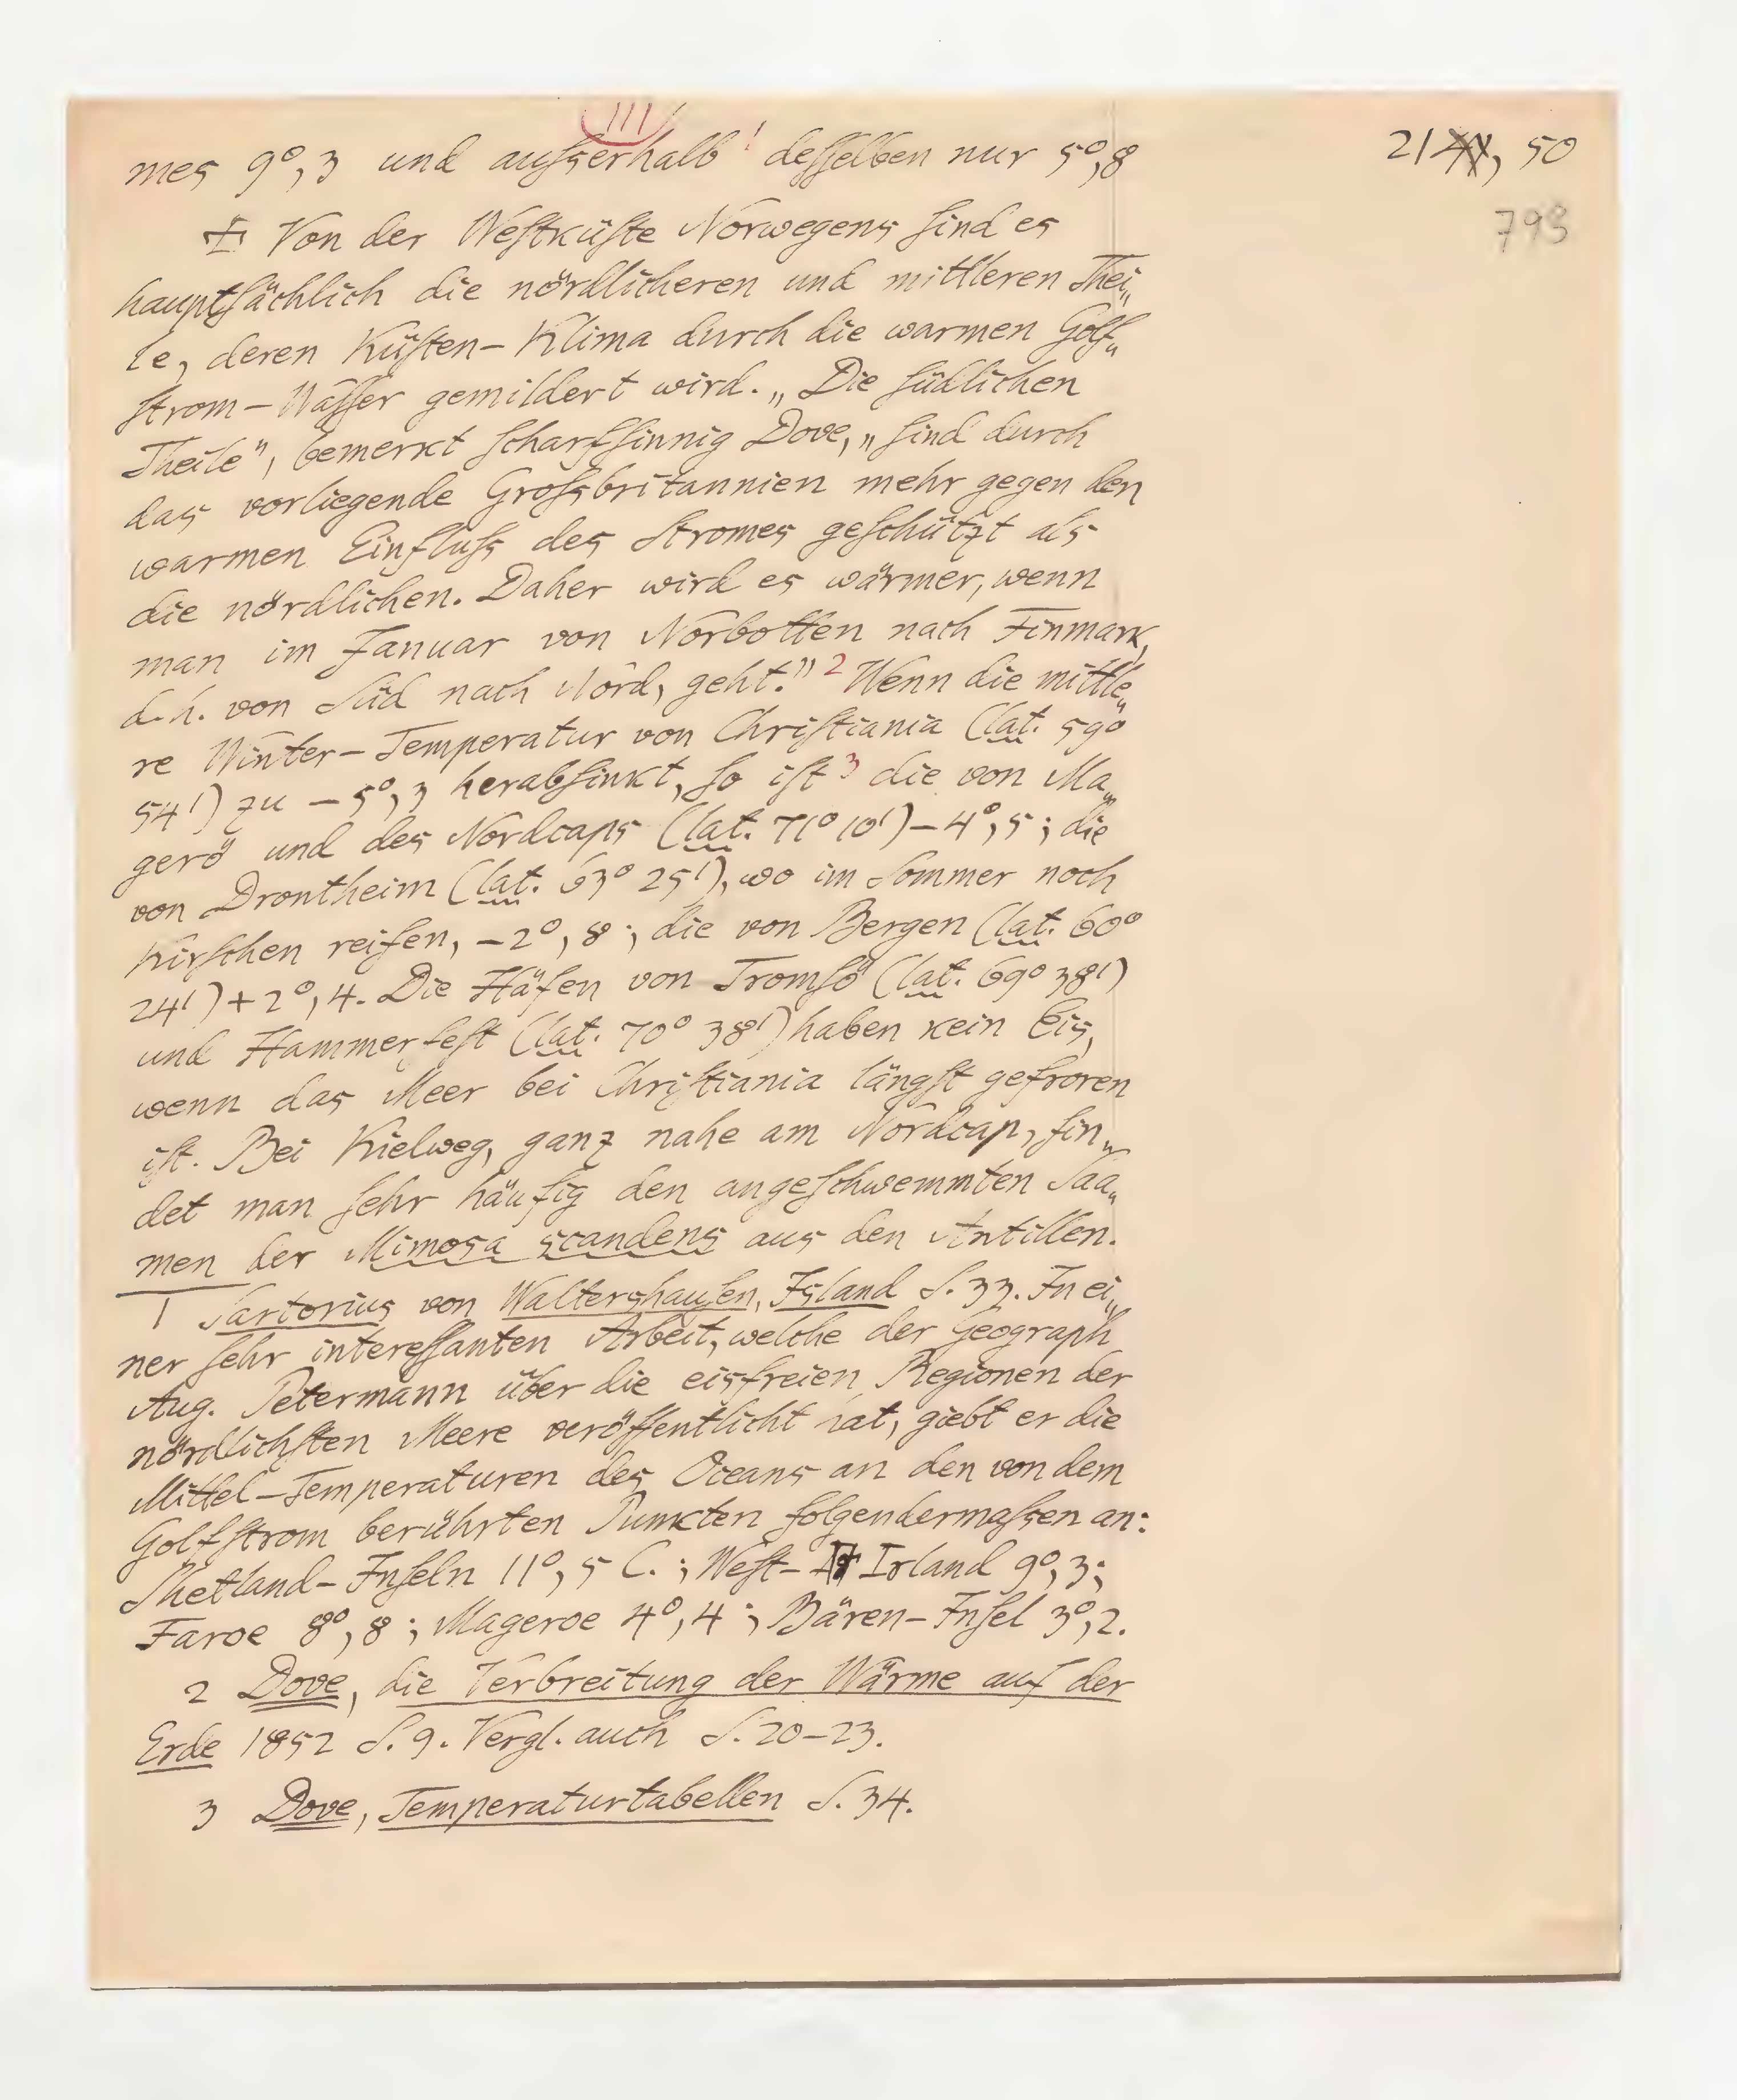 III
mes 9°,3 und aufserhalb 1 deſſelben nur 5°,8
21, 50
793
Von der Weſtküſte Norwegens ſind es
hauptſächlich die nördlicheren und mittleren Thei„
le, deren Küſten-Klima durch die warmen Golf„
ſtrom-Waſſer gemildert wird. „Die ſüdlichen
Theile", bemerkt ſcharfſinnig Dove, „ſind durch
das vorliegende Grofsbritannien mehr gegen den
warmen Einflufs des Stromes geſchützt als
die nördlichen. Daher wird es wärmer, wenn
man im Januar von Norbotten nach Finmark,
d. h. von Süd nach Nord, geht." 2 Wenn die mittle„
re Winter-Temperatur von Chriſtiania (lat. 59°
54') zu -5°,3 herabſinkt, ſo iſt 3 die von Ma„
gerö und des Nordcaps (lat. 71° 10') -4°,5; die
von Drontheim (lat. 63° 25'), wo im Sommer noch
Kirſchen reifen, -2°,8; die von Bergen (lat. 60°
24') +2°,4. Die Häfen von Tromſö (lat. 69° 38')
und Hammerfeſt (lat. 70° 38') haben kein Eis,
wenn das Meer bei Chriſtiania längſt gefroren
iſt. Bei Kielweg, ganz nahe am Nordcap, fin„
det man ſehr häufig den angeſchwemmten Saa„
men der Mimosa scandens aus den Antillen.
1 Sartorius von Waltershauſen, Island S. 33. In ei„
ner ſehr intereſſanten Arbeit, welche der Geograph
Aug. Petermann über die eisfreien Regionen der
nördlichſten Meere veröffentlicht hat, giebt er die
Mittel-Temperaturen des Oceans an den von dem
Golfſtrom berührten Punkten folgendermafsen an:
Shetland-Inſeln 11°,5 C.; Weſt-Irland 9°,3;
Faroe 8°,8; Mageroe 4°,4; Bären-Inſel 3°,2.
2 Dove, die Verbreitung der Wärme auf der
Erde 1852 S. 9. Vergl. auch S. 20-23.
3 Dove, Temperaturtabellen S. 34.